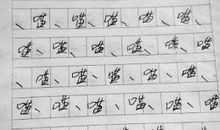 、喵、喵、喵、喵、喵、
喵、喵、喵、喵、喵、喵、
、喵、喵、喵、喵、喵、
喵、喵、喵、喵、喵、喵